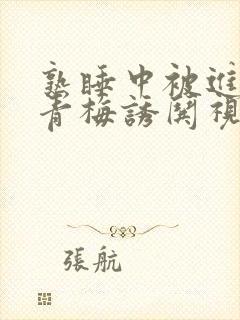 熟睡中被進
青梅誘関視
張航